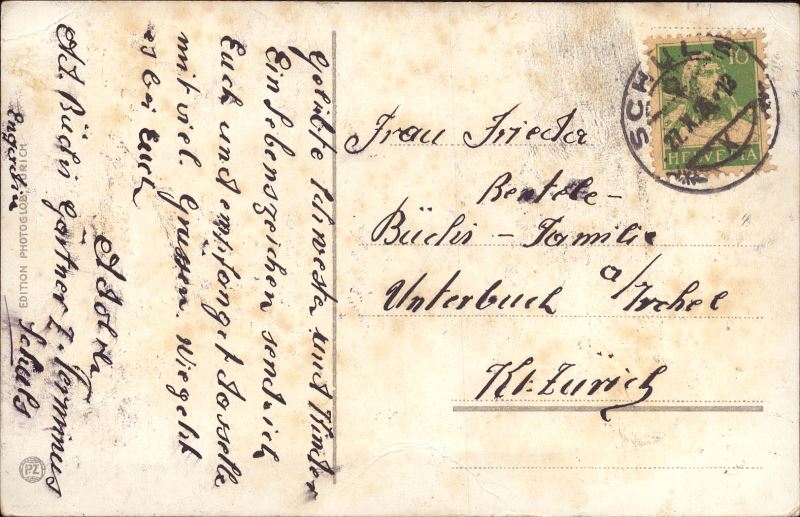 Geliebte Schwester und Kinder
Ein Lebenszeichen send ich
Euch und empfanget dasselbe
mit viel Grüssen. Wie geht
es bei Euch
Adolf
Ad. Büchi Gärtner z. Terminus
Schuls
Engadin
EDITION PHOTOGLOB ZÜRICH
PZ
SCHULS
10
HELVETIA
Frau Frieda
Bertele-
Büchi - Familie
Unterbuch a/Irchel
Kt. Zürich